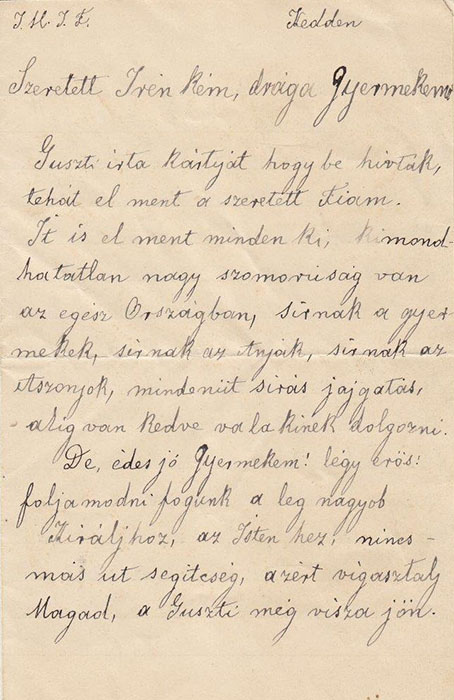 Kedden
Szeretett Irén kém, drága Gyermekem
Guszti írta kártyját hogy be hivták,
tehát el ment a szeretett Fiam.
It is el ment minden ki, kimond-
hatatlan nagy szomorúság van
az egész Országban, sírnak a gyer-
mekek, sírnak az Anják, sírnak az
Aszonjok, mindenüt sírás jajgatás,
alig van kedve va la kinek dolgozni.
De, édes jó Gyermekem! légy erös!
foljamodni fogunk a leg nagyob
Királjhoz, az Isten hez, nincs-
más ut segitcség, azért vigasztalj
Magad, a Guszti még visza jön.